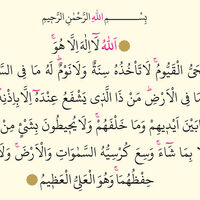 بِسْــــــمِ اللهِ الرَّحْمٰنِ الرَّحِيْمِ
اَللهُ لَآ اِلٰهَ اِلَّا هُوَۚ
حَيُّ الْقَيُّوْمُ ەۚ لَا تَأْخُذُهٗ سِنَةٌ وَّلَا نَوْمٌؕ لَهٗ مَا فِى
مَا فِى الْاَرْضِؕ مَنْ ذَا الَّذِىْ يَشْفَعُ عِنْدَهٗٓ اِلَّا بِاِذْنِهٖؕ
بَيْنَ اَيْدِيْهِمْ وَمَا خَلْفَهُمْۚ وَلَا يُحِيْطُوْنَ بِشَىْءٍ مِّنْ
بِمَا شَآءَۚ وَسِعَ كُرْسِيُّهُ السَّمٰوٰتِ وَالْاَرْضَۚ
حِفْظُهُمَاۚ وَهُوَ الْعَلِىُّ الْعَظِيْمُ